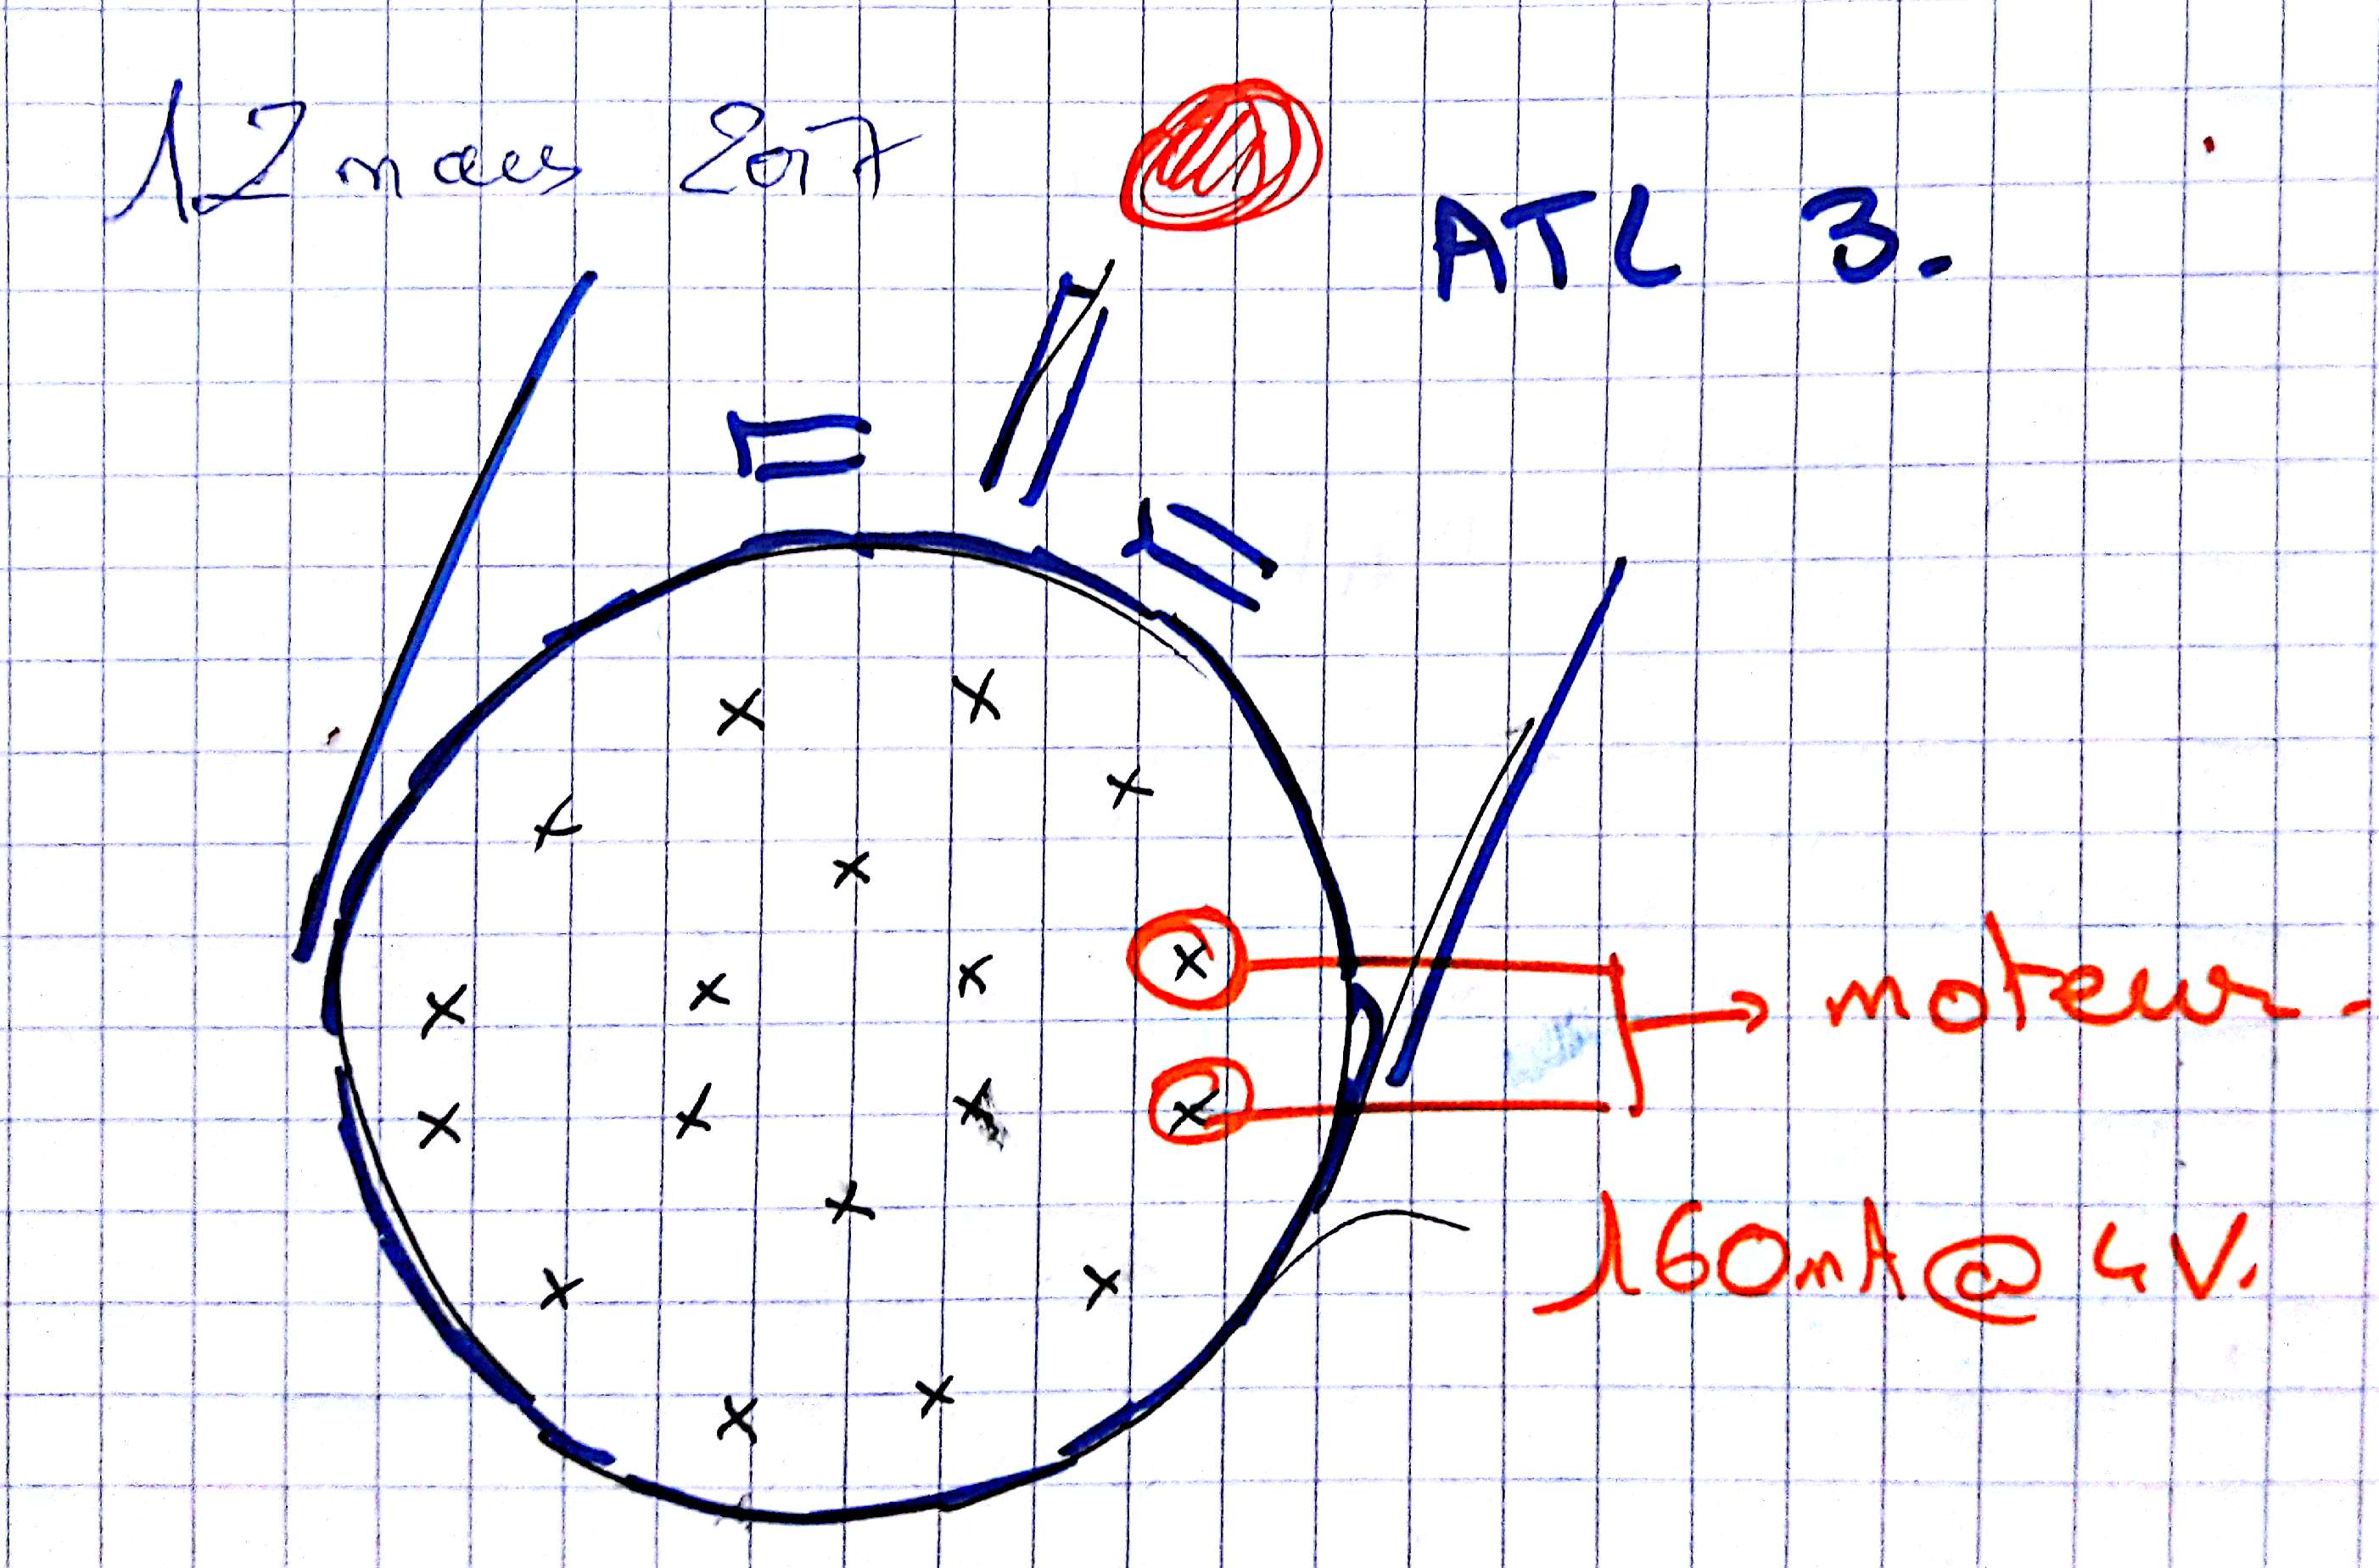 12 mars 2017
ATL 3.
moteur.
160mA @ 4V.